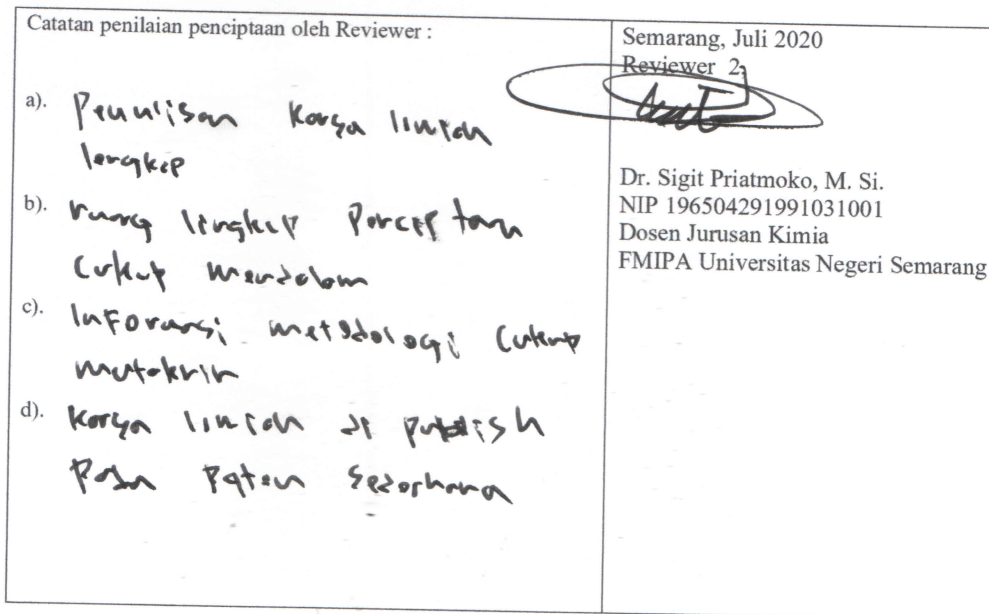 Catatan penilaian penciptaan oleh Reviewer :
a). Penulisan Karya Ilmiah
lengkap
b). ruang lingkup Penciptaan
Cukup mendalam
c). Informasi metodologi Cukup
mutakhir
d). Karya Ilmiah di publish
Pada Paten Sederhana
Semarang, Juli 2020
Reviewer 2
Dr. Sigit Priatmoko, M. Si.
NIP 196504291991031001
Dosen Jurusan Kimia
FMIPA Universitas Negeri Semarang